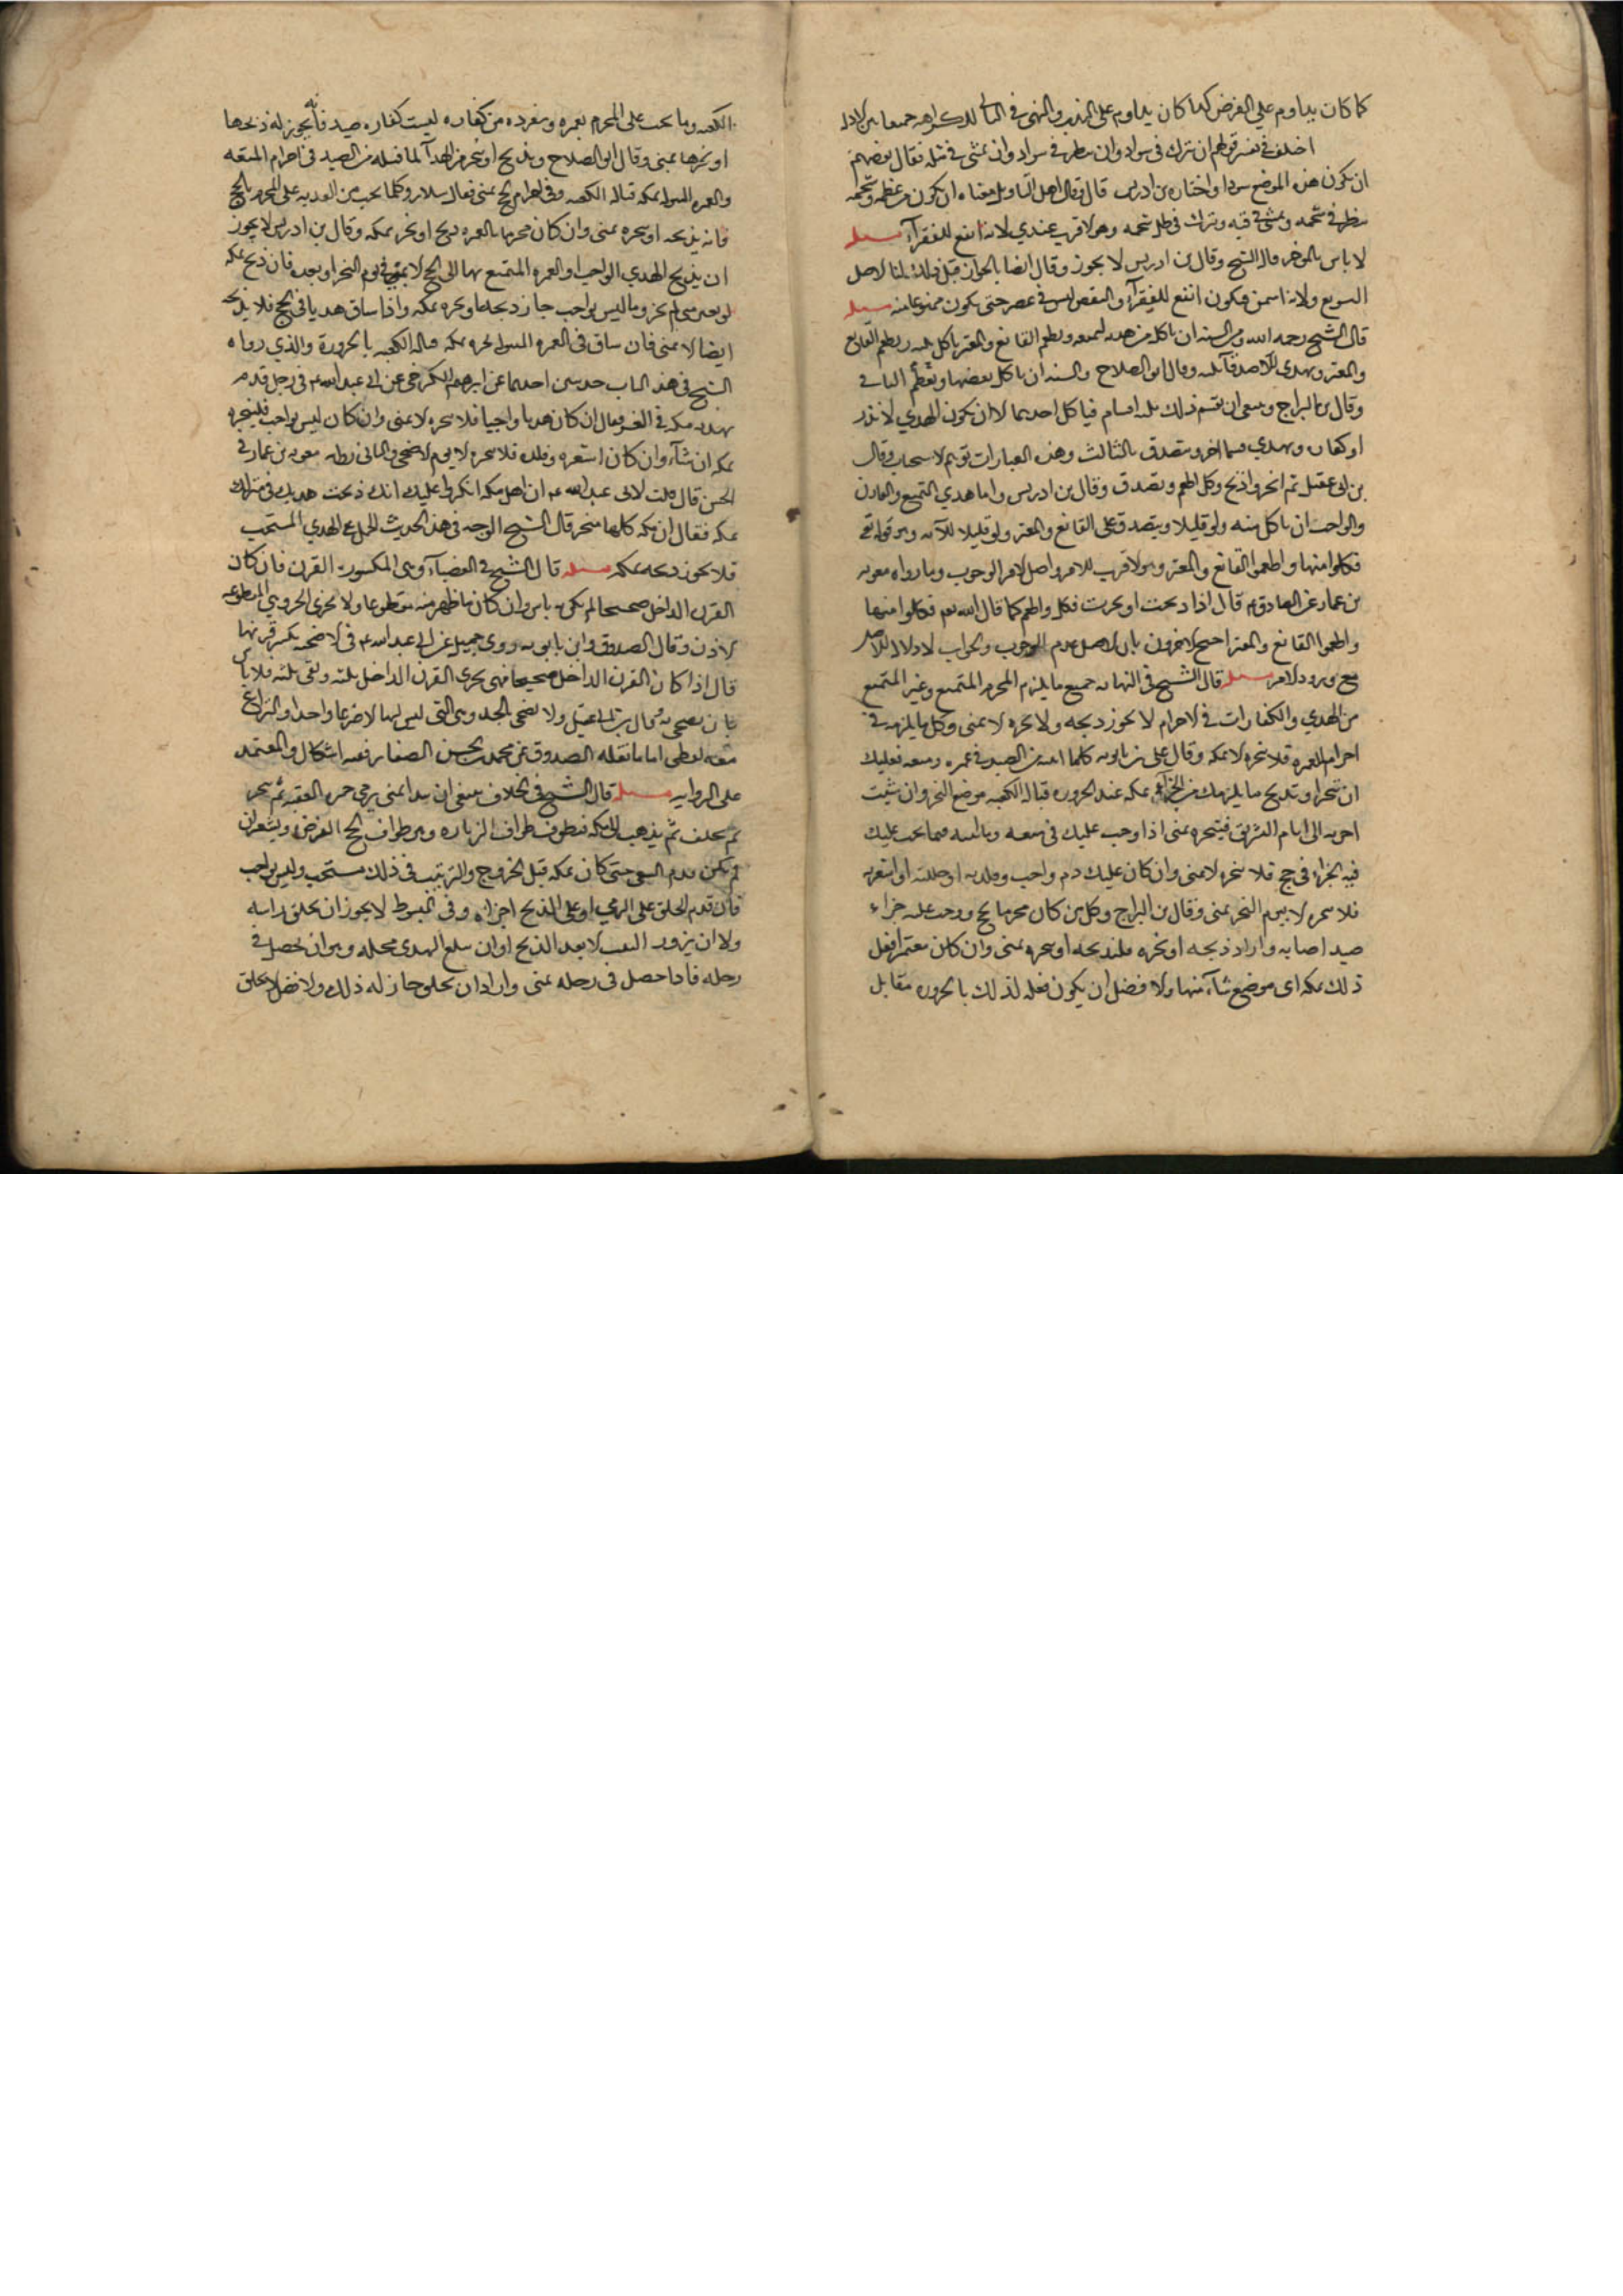 كما كان يداوم علي الفرض كما كان يداوم على الندب والنهي في الثاني للكراهه جمعا بين الادله
اختلف في تفسير قولهم ان تبرك في سواد وان ينظر في سواد وان يمشي في مثله فقال بعضهم
ان يكون هذه المواضع سودا واختاره بن ادريس قال وقال اهل التاويل معناه ان يكون من عظمه وشحمه
ينظر في شحمه ويمشي في فيه ويبرك في ظل شحمه وهو الاقرب عندي لانه انفع للفقرآء مسله
لا باس بالموخر قاله الشيخ وقال بن ادريس لا يجوز وقال ايضا بالجواز قبل ذلك لنا الاصل
السويغ ولانه اسمن فيكون انفع للفقرآء والنقص ليس في عضو حتى يكون ممنوعا منه مسله
قال الشيخ رحمه الله ومن السنه ان ياكل من هديه لمتعه ويطعم القانع والمعتر ياكل ثلثه ويطعم القانع
والمعتر ويهدي للاصدقآء ثلثه وقال ابو الصلاح والسنه ان ياكل بعضها ويطعم الباقي
وقال بن البراج وينبغي ان يقسم ذلك ثلثه اقسام فياكل احدهما الا ان يكون الهدي لنذر
او كفاره ويهدي قسما اخر ويتصدق بالثالث وهذه العبارات توهم الاستحباب وقال
بن ابي عقيل ثم انحر واذبح وكل اطعم وتصدق وقال بن ادريس واما هدي التمتع والقارن
والواجب ان ياكل منه ولو قليلا ويتصدق على القانع والمعتر ولو قليلا للآيه وهو قوله تع
فكلوا منها واطعموا القانع والمعتر وهو الاقرب للامر واصل الامر الوجوب وما رواه معويه
بن عمار عن الصادق ع قال اذا ذبحت او نحرت فكل واطعم كما قال الله تعم فكلوا منها
واطعموا القانع والمعتر احتج الاخرون بان الاصل عدم الوجوب والجواب لا دلاله للاصل
مع ورود الامر مسله قال الشيخ في النهايه جميع ما يلزم المحرم المتمتع وغير المتمتع
من الهدي والكفارات في الاحرام لا يجوز ذبحه ولا نحره الا بمنى وكل ما يلزمه في
احرام العمره فلا ينحره الا بمكه وقال علي بن بابويه كلما اتيته من الصيد في عمره او متعه فعليك
ان تنحر او تذبح ما يلزمك من الجزآء بمكه عند الحزوره قباله الكعبه موضع النحر وان شئت
اخرته الى ايام التشريق فتنحره بمنى اذا وجب عليك في متعه وما اشبه مما يجب عليك
فيه الجزاء في حج فلا تنحره الا بمنى وان كان عليك دم واجب وقلدته او جللته او اشعرته
فلا تنحره الا يوم النحر بمنى وقال بن البراج وكل من كان محرما بحج ووجب عليه جزاء
صيد اصابه واراد ذبحه او نحره فليذبحه او ينحره بمنى وان كان معتمرا فعل
ذلك بمكه اي موضع شآء منها والافضل ان يكون فعله لذلك بالحزوره مقابل
الكعبه وما يجب على المحرم بعمره ومفرده من كفاره ليست كفاره صيد فانه يجوز له ذبحها
او نحرها بمنى وقال ابو الصلاح ويذبح او ينحر من الهدآ لما قتله من الصيد في احرام المتعه
والعمره المبتوله بمكه قباله الكعبه وفي احرام الحج بمنى فقال سلار وكلما يجب من الفديه على المحرم بالحج
فانه يذبحه او ينحره بمنى وان كان محرما بالعمره ذبح او نحر بمكه وقال بن ادريس لا يجوز
ان يذبح الهدي الواجب او العمره المتمتع بها الى الحج الا بمنى في يوم النحر او بعده فان ذبح بمكه
لو بغير منى لم يجز وما ليس بواجب جاز ذبحه او نحره بمكه واذا ساق هديا في الحج فلا يذبحه
ايضا الا بمنى فان ساق في العمره المبتوله نحره بمكه قباله الكعبه بالحزورة والذي رواه
الشيخ في هذا الباب حديثين احدهما عن ابرهيم الكرخي عن ابي عبد الله ع في رجل قدم
بهديه مكه في العشر فقال ان كان هديا واجبا فلا ينحره الا بمنى وان كان ليس بواجب فلينحره
بمكه ان شآء وان كان اشعره وقلده فلا ينحره الا يوم الاضحى والثاني رواه معويه بن عمار في
الحسن قال قلت لابي عبد الله ع ان اهل مكه انكروا عليك انك ذبحت هديك في منزلك
بمكه فقال ان مكه كلها منحر قال الشيخ الوجه في هذا الحديث الحمل على الهدي المستحب
فلا يجوز ذبحه بمكه مسله قال الشيخ في العضبآء وهي المكسورة القرن فان كان
القرن الداخل صحيحا لم يكن به باس وان كان ما ظهر منه مقطوعا ولا يجزي الحروني المقطوعه
الاذن وقال الصدوق وابن بابويه روى جميل عن ابي عبد الله ع في الاضحيه يكسر قرنها
قال اذا كان القرن الداخل صحيحا فهي يجزي القرن الداخل ثلثه وبقي ثلثه فلا باس
بان يضحى به وقال بن ابي عقيل ولا يضحى الجدا وهي التي ليس لها الا ضرعا واحدا والنزاع
معه لفظي اما ما نقله الصدوق عن محمد بن الحسن الصفار ففيه اشكال والمعتمد
على الروايه مسله قال الشيخ في الخلاف ينبغي ان يبدا بمنى يرمي جمره العقبه ثم ينحر
ثم يحلف ثم يذهب الى مكه فيطوف طواف الزياره وهو طواف الحج الفرض ويسعى ان
لم يكن قدم السعي حتى كان بمكه قبل الخروج والترتيب في ذلك مستحب وليس بواجب
فان قدم الحلق على الرمي او على الذبح اجزاه وفي المبسوط لا يجوز ان يحلق راسه
ولا ان يزور البيت الا بعد الذبح او ان يبلغ الهدي محله وهو ان يحصل في
رحله فاذا حصل في رحله بمنى واراد ان يحلق جاز له ذلك والافضل لا يحلق